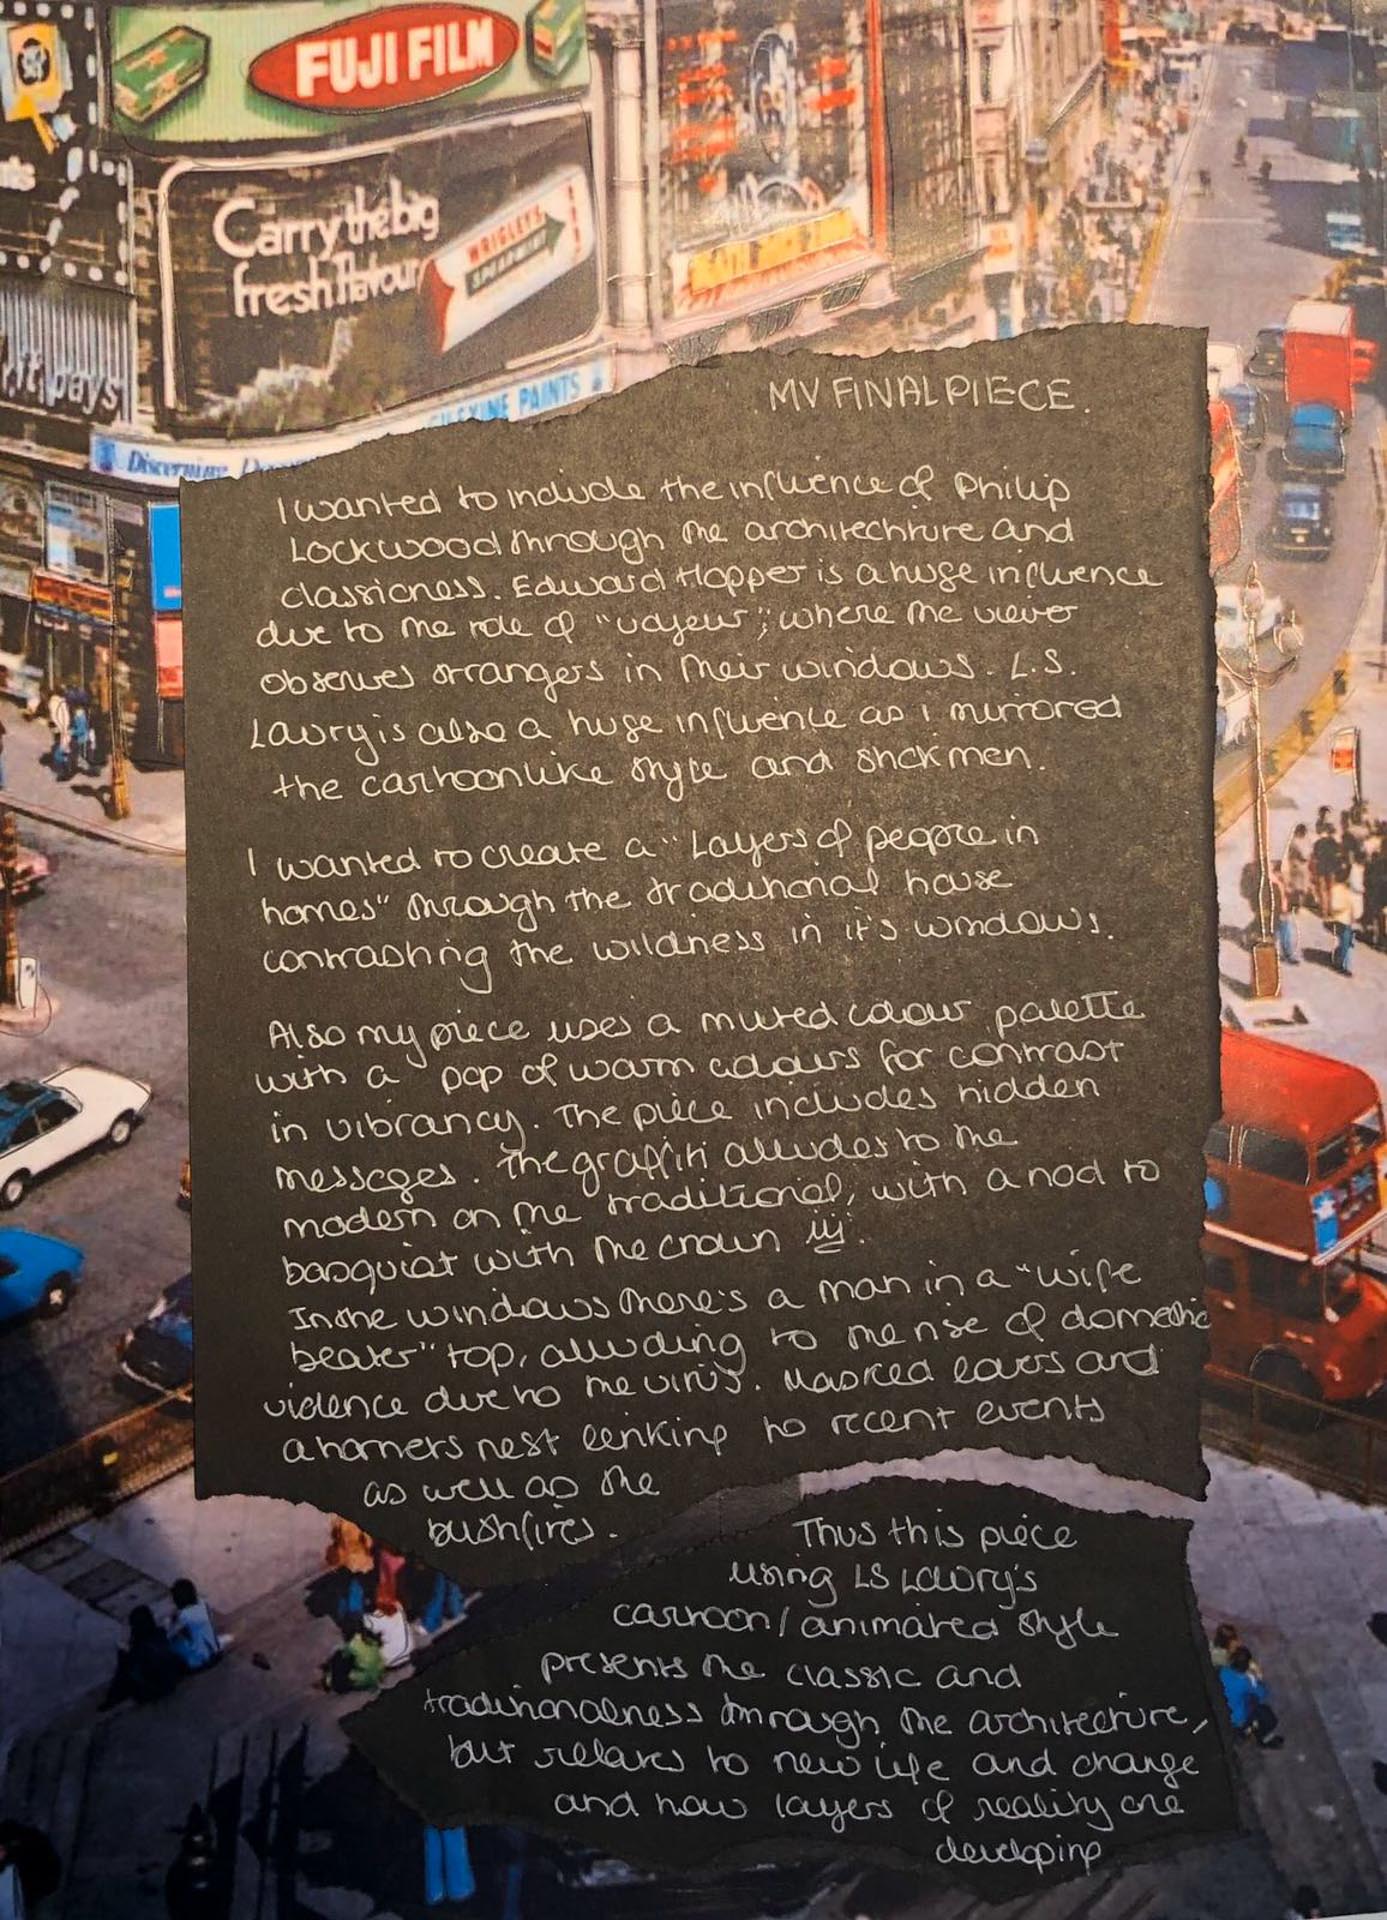 FUJI FILM
Carry the big
fresh flavour
WRIGLEY'S
SPEARMINT
PAINTS
Discerning
MY FINAL PIECE.
I wanted to include the influence of Philip
Lockwood through the architechture and
classicness. Edward Hopper is a huge influence
due to the role of "voyeur", where the viewer
observes strangers in their windows. L.S.
Lawry is also a huge influence as I mirrored
the cartoonlike style and stickmen.
I wanted to create a "Layers of people in
homes" through the traditional house
contrasting the wildness in it's windows.
Also my piece uses a muted colour palette
with a pop of warm colours for contrast
in vibrancy. The piece includes hidden
messages. The graffiti alludes to the
modern on the traditional, with a nod to
basquiat with the crown
In the windows there's a man in a "wife
beater" top, alluding to the rise of domestic
violence due to the virus. Masked lovers and
a hornets nest linking to recent events
as well as the
bushfires.
Thus this piece
using LS Lowry's
cartoon/animated style
presents the classic and
traditionalness through the architecture,
but relates to new life and change
and how layers of reality are
developing